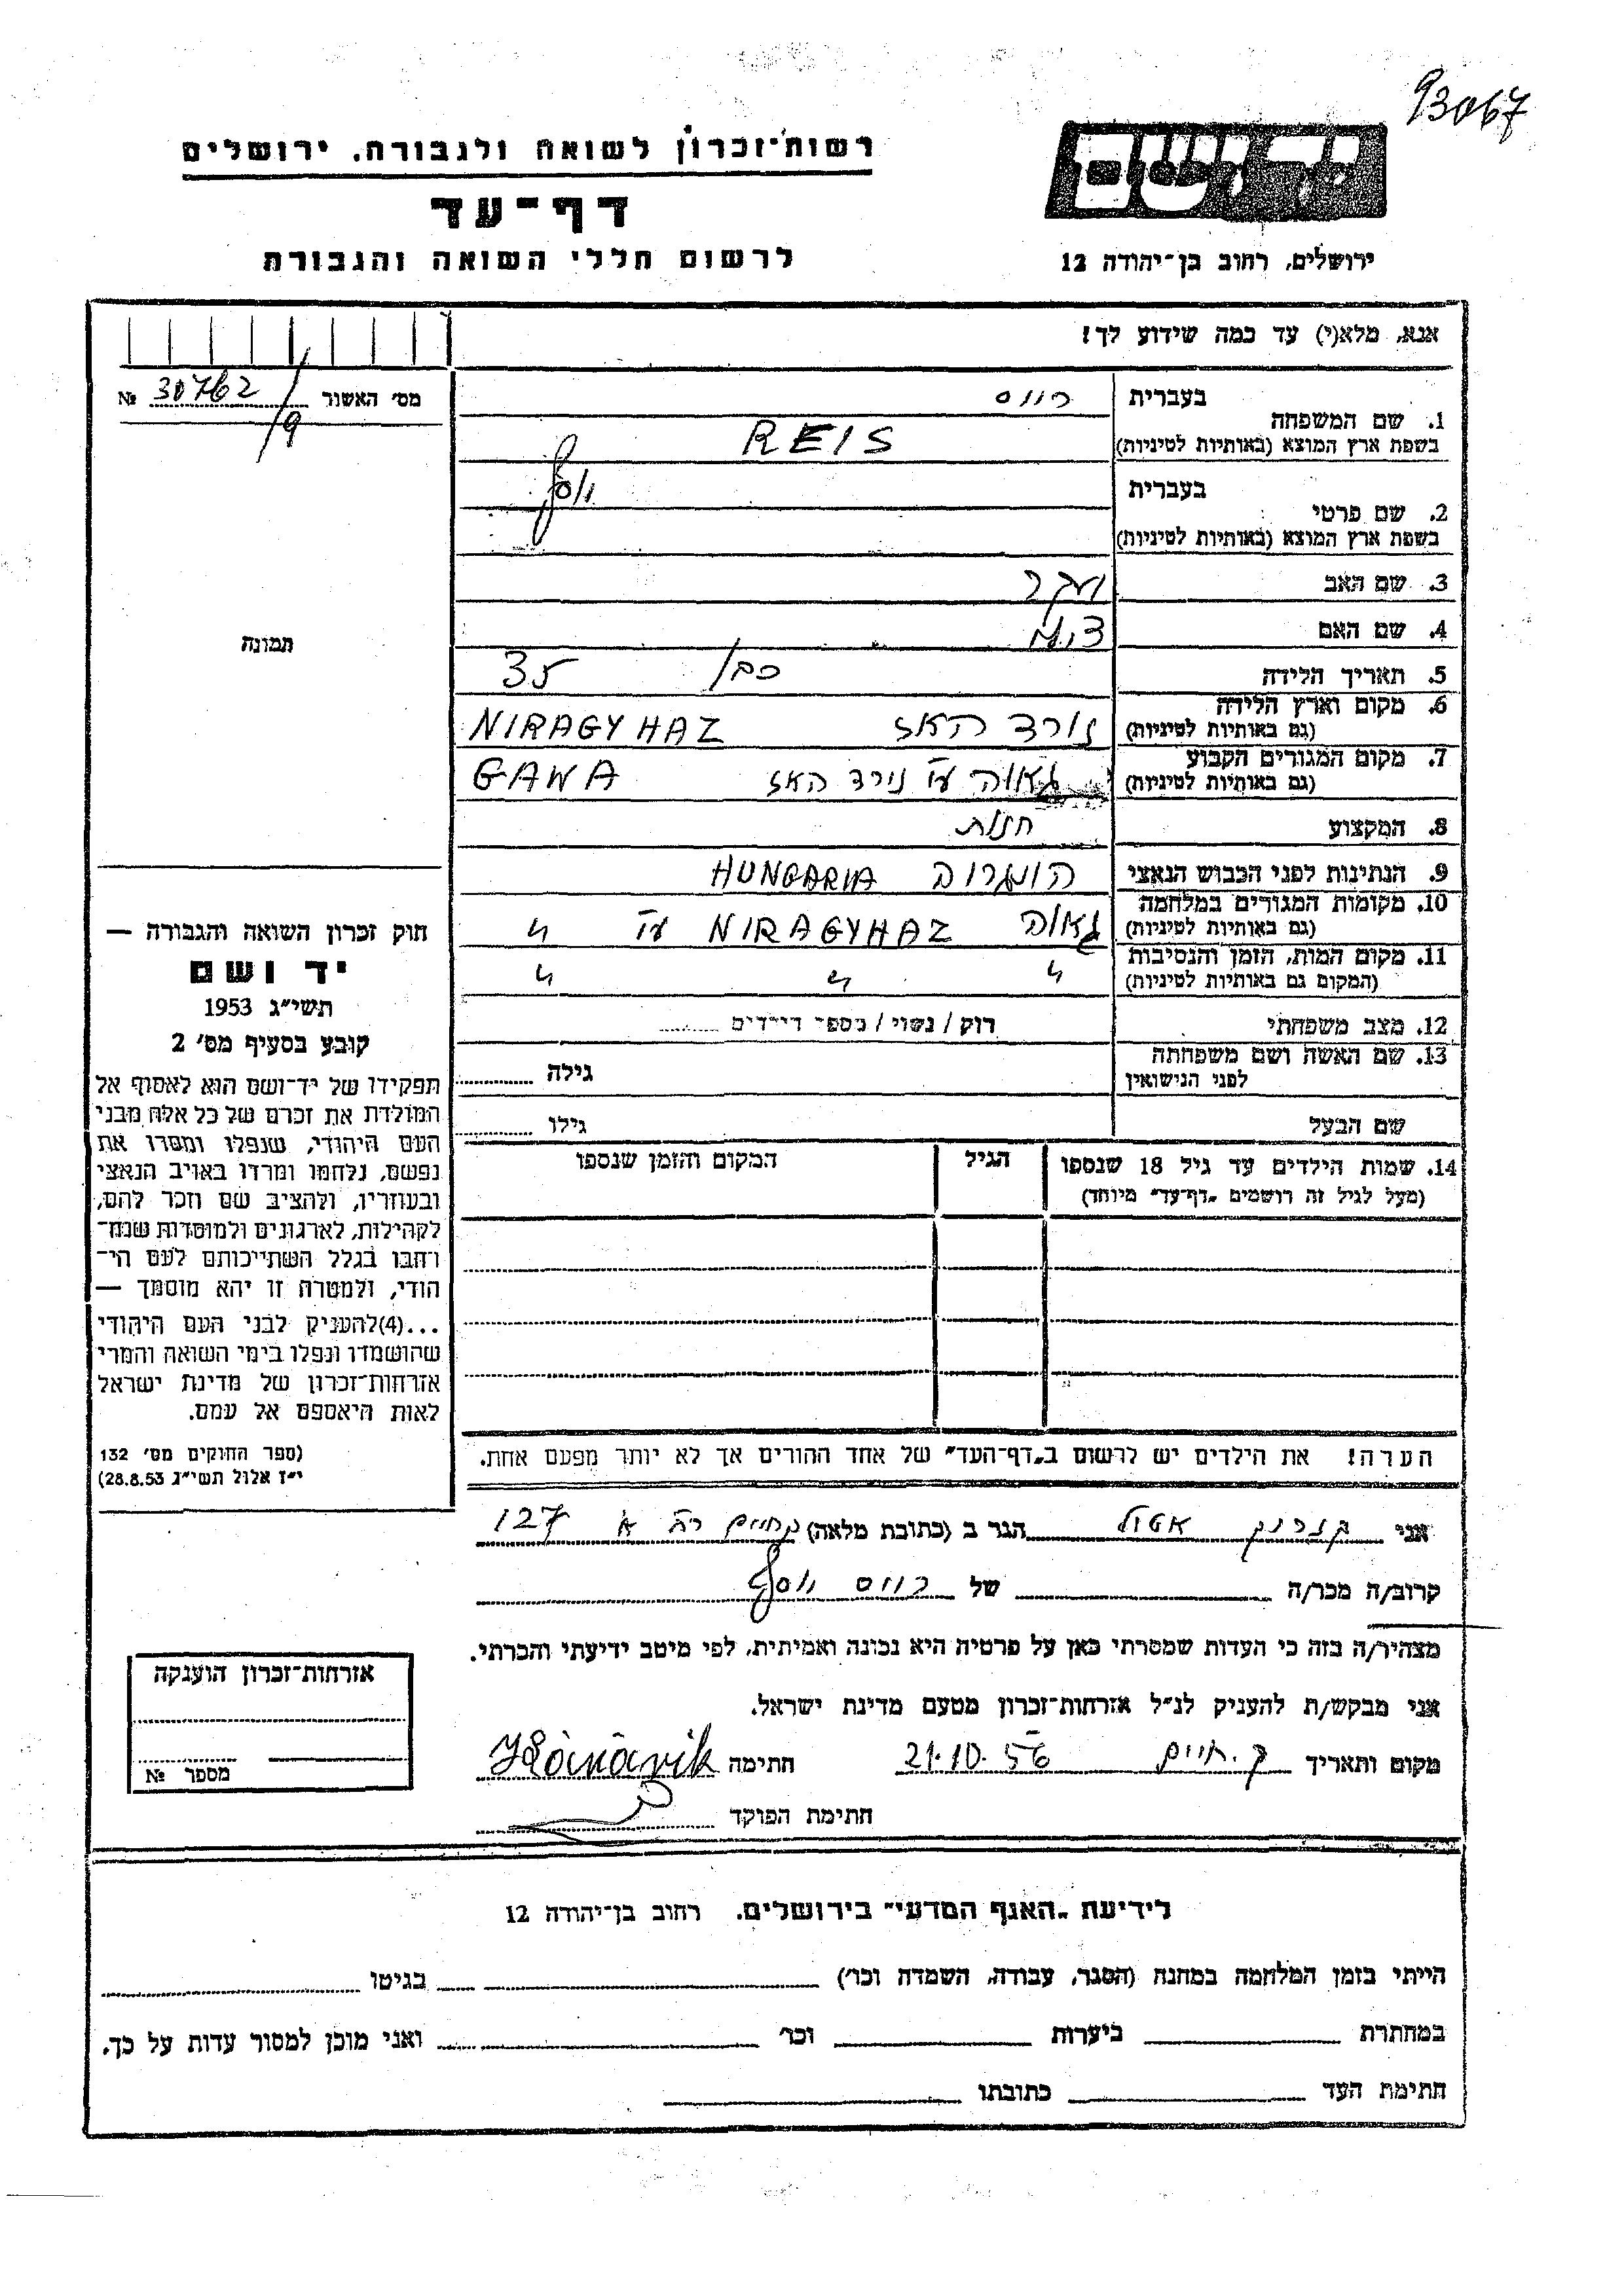 93067
רשות־זכרון לשואה ולגבורה. ירושלים
דף־עד
לרשום חללי השואה והגבורה
יד ושם
ירושלים, רחוב בן־יהודה 12
אנא, מלא(י) עד כמה שידוע לך!
מס' האשור № 30762/9
1. שם המשפחה
בעברית רייס
בשפת ארץ המוצא (באותיות לטיניות) REIS
2. שם פרטי
בעברית יוסף
בשפת ארץ המוצא (באותיות לטיניות)
3. שם האב יעקב
4. שם האם
5. תאריך הלידה 35
6. מקום וארץ הלידה
(גם באותיות לטיניות) נירד האז NIRAGYHAZ
7. מקום המגורים הקבוע
(גם באותיות לטיניות) גאוה ע"י נירד האז GAWA
8. המקצוע חנות
9. הנתינות לפני הכבוש הנאצי הונגריה HUNGARIA
10. מקומות המגורים במלחמה
(גם באותיות לטיניות) גאוה NIRAGYHAZ ע"י "
11. מקום המות, הזמן והנסיבות
(המקום גם באותיות לטיניות) " " "
12. מצב משפחתי רוק / נשוי / מספר הילדים
13. שם האשה ושם משפחתה
לפני הנישואין גילה
שם הבעל גילו
14. שמות הילדים עד גיל 18 שנספו
(מעל לגיל זה רושמים „דף־עד" מיוחד)
הגיל
המקום והזמן שנספו
הערה! את הילדים יש לרשום ב„דף־העד" של אחד ההורים אך לא יותר מפעם אחת.
תמונה
חוק זכרון השואה והגבורה —
יד ושם
תשי"ג 1953
קובע בסעיף מס' 2
תפקידו של יד־ושם הוא לאסוף אל
המולדת את זכרם של כל אלה מבני
העם היהודי, שנפלו ומסרו את
נפשם, נלחמו ומרדו באויב הנאצי
ובעוזריו, ולהציב שם וזכר להם,
לקהילות, לארגונים ולמוסדות שנח־
רחבו בגלל השתייכותם לעם הי־
הודי, ולמטרה זו יהא מוסמך —
...(4)להעניק לבני העם היהודי
שהושמדו ונפלו בימי השואה והמרי
אזרחות־זכרון של מדינת ישראל
לאות היאספם אל עמם.
(ספר החוקים מס' 132
י"ז אלול תשי"ג 28.8.53)
אני אטול הגר ב (כתובת מלאה) ק חיים רח א 127
קרוב/ה מכר/ה של רייס יוסף
מצהיר/ה בזה כי העדות שמסרתי כאן על פרטיה היא נכונה ואמיתית, לפי מיטב ידיעתי והכרתי.
אני מבקש/ת להעניק לנ"ל אזרחות־זכרון מטעם מדינת ישראל.
מקום ותאריך ק. חיים 21.10.56 חתימה
חתימת הפוקד
אזרחות־זכרון הוענקה
מספר №
לידיעת „האגף המדעי" בירושלים. רחוב בן־יהודה 12
הייתי בזמן המלחמה במחנה (הסגר, עבודה, השמדה וכו') בגיטו
במחתרת ביערות וכו' ואני מוכן למסור עדות על כך.
חתימת העד כתובתו